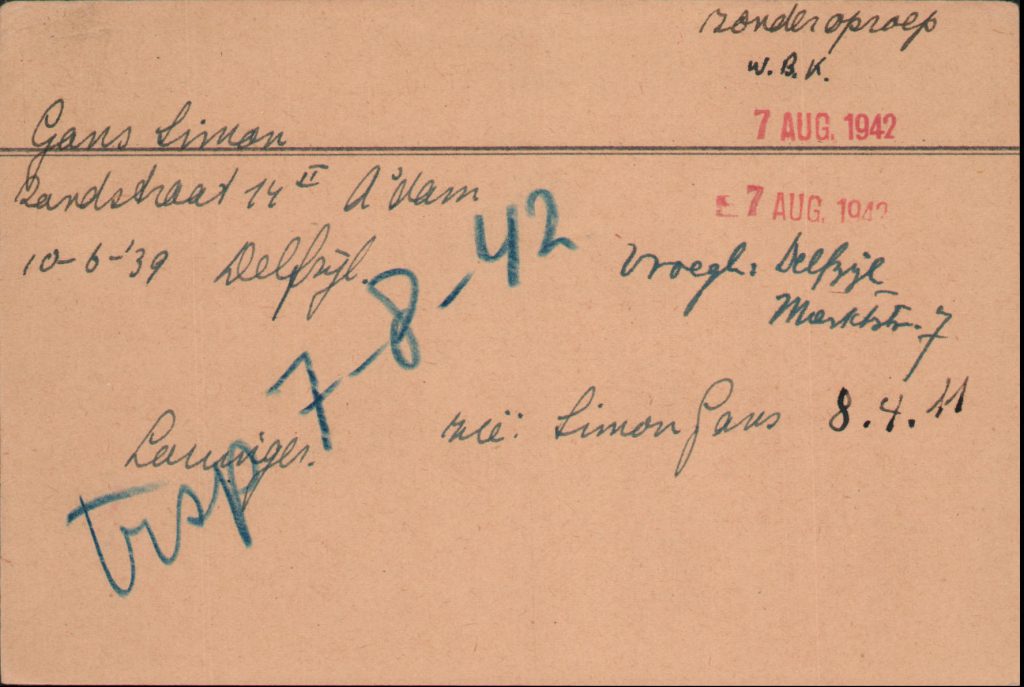 zonder oproep
W.B.K.
7 AUG. 1942
Gans Simon
Zandstraat 14 II A'dam
7 AUG. 1942
10-6-'39 Delfzijl.
Vroegh: Delfzijl
Marktstr. 7
trsp 7-8-42
zië: Simon Gans 8.4.11